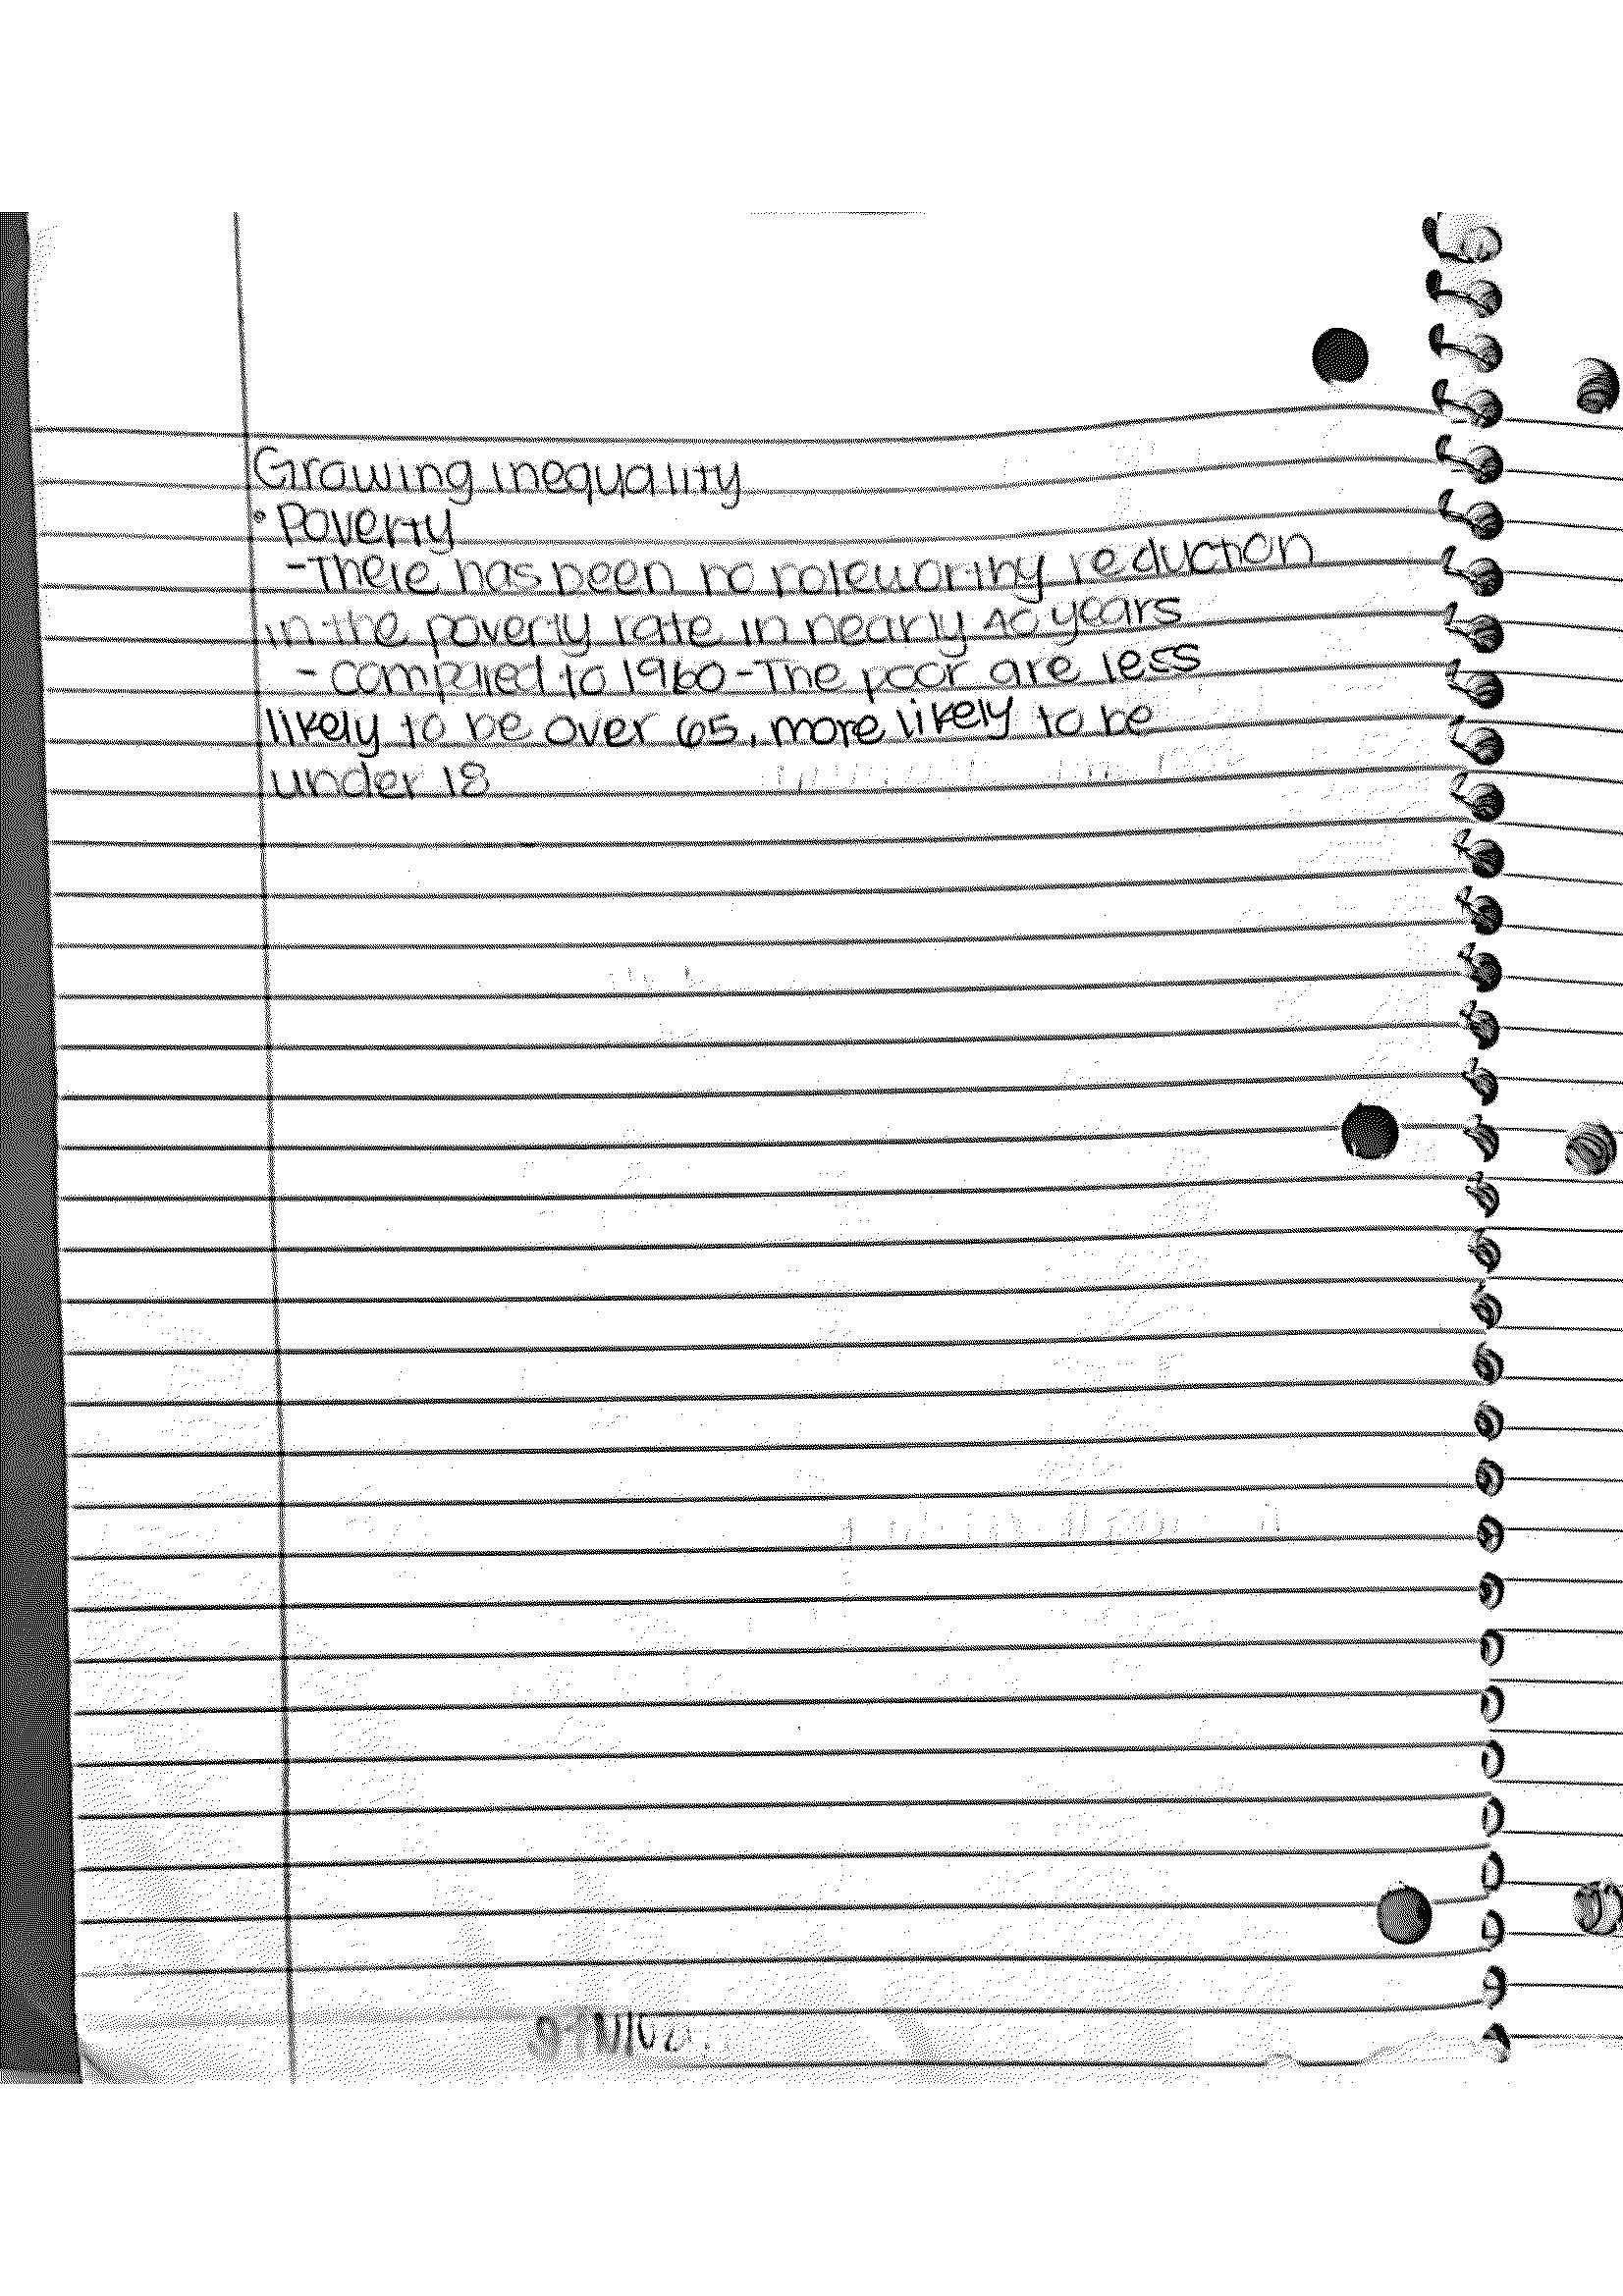 Growing inequality
• Poverty
- There has been no noteworthy reduction
in the poverty rate in nearly 40 years
- compared to 1960 - The poor are less
likely to be over 65, more likely to be
under 18